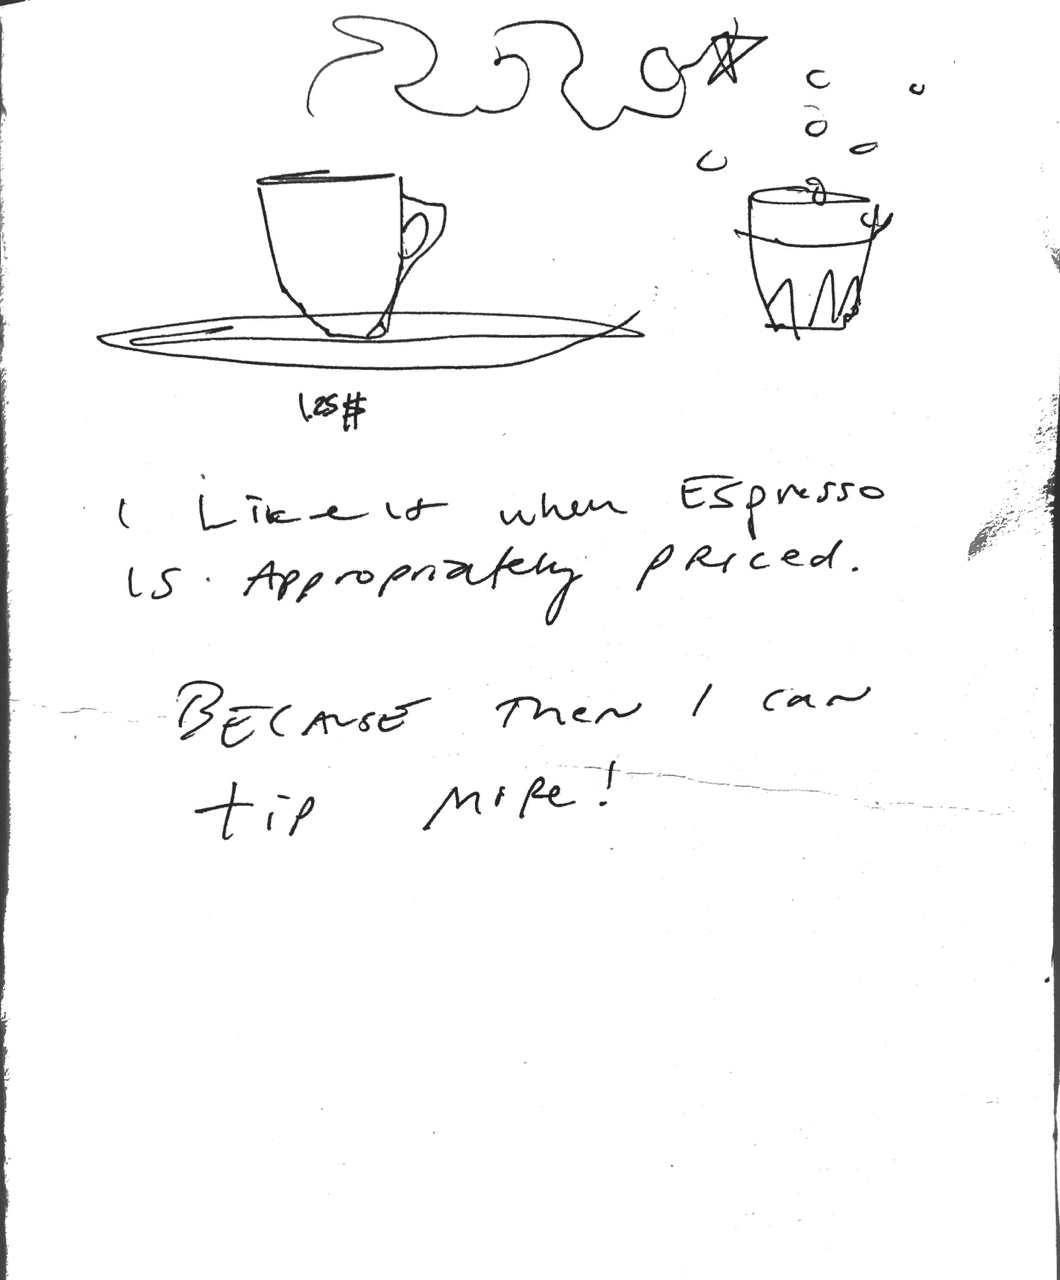 1.25#
I Like it when Espresso
is Appropriately priced.
BECAUSE then I can
tip more!